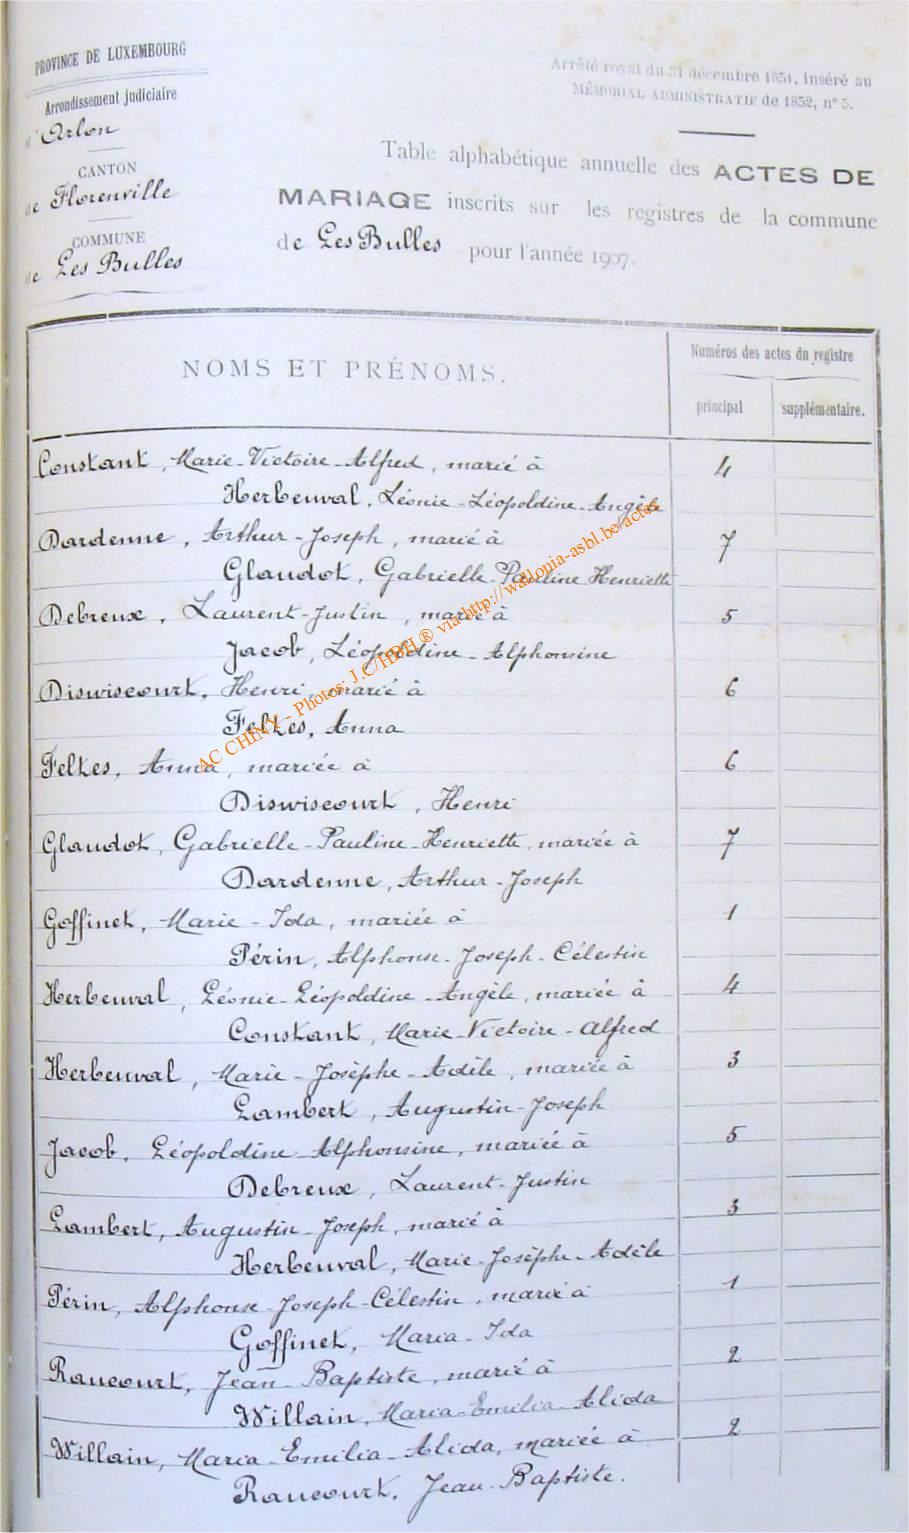 PROVINCE DE LUXEMBOURG
Arrondissement judiciaire
d'Arlon
CANTON
de Florenville
COMMUNE
de Les Bulles
Arrêté royal du 31 décembre 1851, inséré au
MÉMORIAL ADMINISTRATIF de 1852, n° 5.
Table alphabétique annuelle des ACTES DE
MARIAGE inscrits sur les registres de la commune
de Les Bulles pour l'année 1907.
NOMS ET PRÉNOMS.
Numéros des actes du registre
principal supplémentaire.
Constant, Marie-Victoire-Alfred, marié à 4
Herbeuval, Léonie-Léopoldine-Angèle
Dardenne, Arthur-Joseph, marié à 7
Glaudot, Gabrielle-Pauline Henriette
Debreux, Laurent-Justin, marié à 5
Jacob, Léopoldine-Alphonsine
Diswiscourt, Henri, marié à 6
Feltes, Anna
Feltes, Anna, mariée à 6
Diswiscourt, Henri
Glaudot, Gabrielle-Pauline-Henriette, mariée à 7
Dardenne, Arthur-Joseph
Goffinet, Marie-Ida, mariée à 1
Périn, Alphonse-Joseph-Célestin
Herbeuval, Léonie-Léopoldine-Angèle, mariée à 4
Constant, Marie-Victoire-Alfred
Herbeuval, Marie-Josèphe-Adèle, mariée à 3
Lambert, Augustin-Joseph
Jacob, Léopoldine Alphonsine, mariée à 5
Debreux, Laurent-Justin
Lambert, Augustin-Joseph, marié à 3
Herbeuval, Marie-Josèphe-Adèle
Périn, Alphonse-Joseph-Célestin, marié à 1
Goffinet, Maria-Ida
Raucourt, Jean-Baptiste, marié à 2
Willain, Maria-Emilia-Alida
Willain, Maria-Emilia-Alida, mariée à 2
Raucourt, Jean-Baptiste.
AC CHINY - Photos: J.C/HBH® via http://wallonia-asbl.be/actes